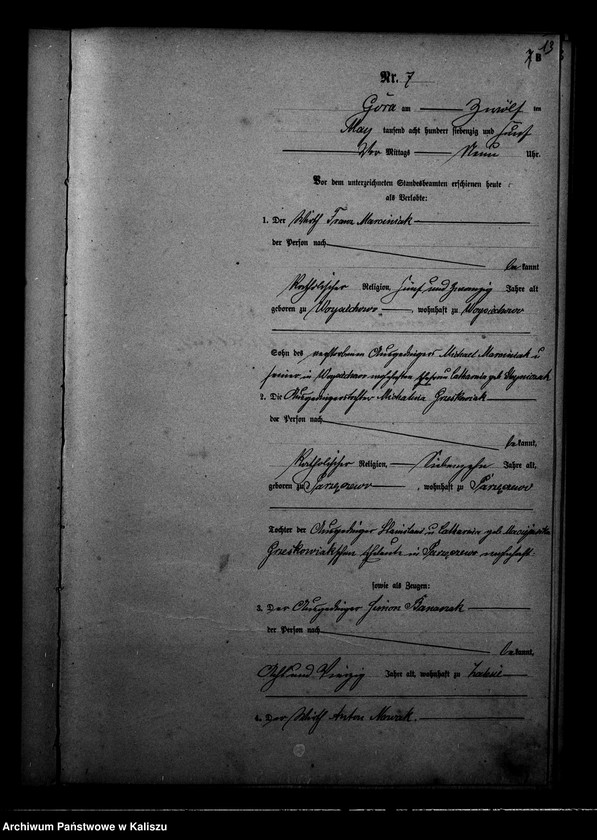 13
B
Nr. 7
Góra am Zwölf ten
May tausend acht hundert siebenzig und fünf
Vor Mittags Neun Uhr.
Vor dem unterzeichneten Standesbeamten erschienen heute
als Verlobte:
1. Der Wirth Franz Marciniak
der Person nach
bekannt
Katholischer Religion, fünf und zwanzig Jahre alt
geboren zu Woyciechowo, wohnhaft zu Woyciechowo
Sohn des verstorbenen Ausgedingers Michael Marciniak u
seiner in wohnhaften Ehefrau Catharina geb
2. Die Ausgedingerstochter Michalina Grzeskowiak
der Person nach
bekannt,
Katholischer Religion, Siebenzehn Jahre alt,
geboren zu Parzęczewo, wohnhaft zu Parzęczewo
Tochter der Ausgedinger Stanislaus u Catharina geb
Grzeskowiakschen Eheleute in Parzęczewo wohnhaft
sowie als Zeugen:
3. Der Ausgedinger Simon Banaszak
der Person nach
bekannt,
Acht und Vierzig Jahre alt, wohnhaft zu Zalesie
4. Der Wirth Anton Nowak.
Archiwum Państwowe w Kaliszu